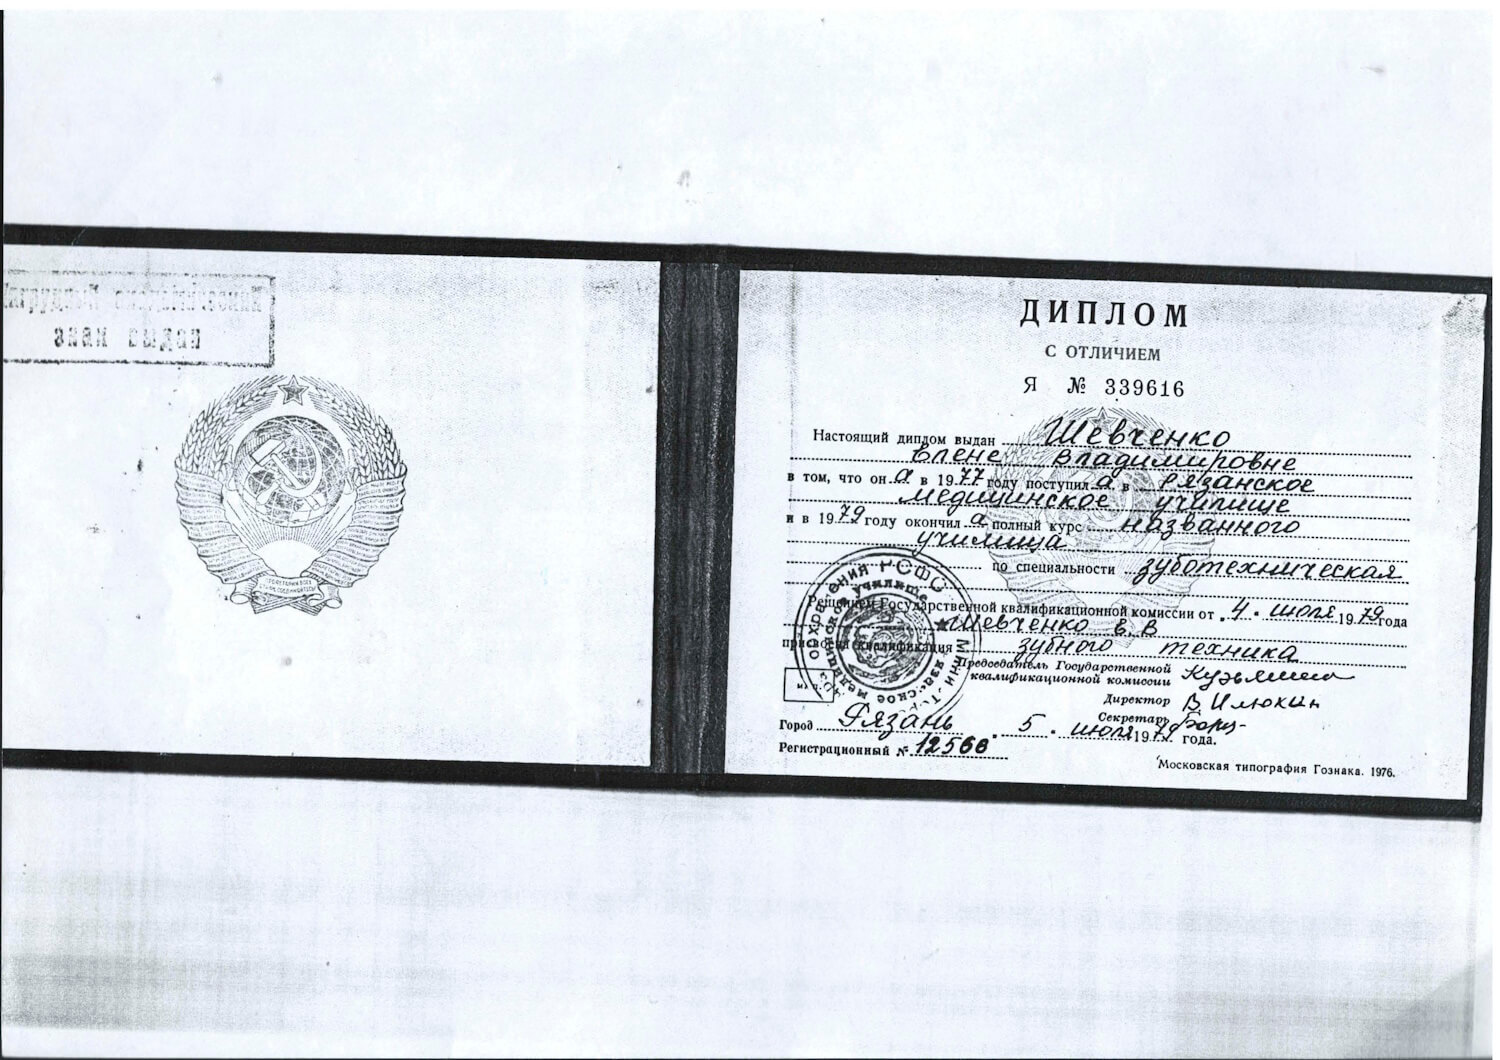 знак выдан
ДИПЛОМ
С ОТЛИЧИЕМ
Я № 339616
Настоящий диплом выдан Шевченко
Елене Владимировне
в том, что он а в 1977 году поступил а в Рязанское
медицинское училище
и в 1979 году окончил а полный курс названного
училища
по специальности зуботехническая
Решением Государственной квалификационной комиссии от „4" июля 1979 года
Шевченко Е. В
присвоена квалификация зубного техника
Председатель Государственной
квалификационной комиссии
Директор В Илюхин
Секретарь
Город Рязань „5" июля 1979 года.
Регистрационный № 12566
Московская типография Гознака. 1976.